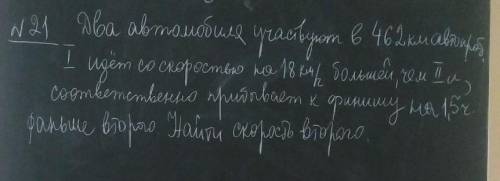 №21 Два автомобиля участвуют в 462 км автопроб.
I идёт со скоростью на 18 км/ч большей, чем II и,
соответственно прибывает к финишу на 1,5ч
раньше второго. Найти скорость второго.